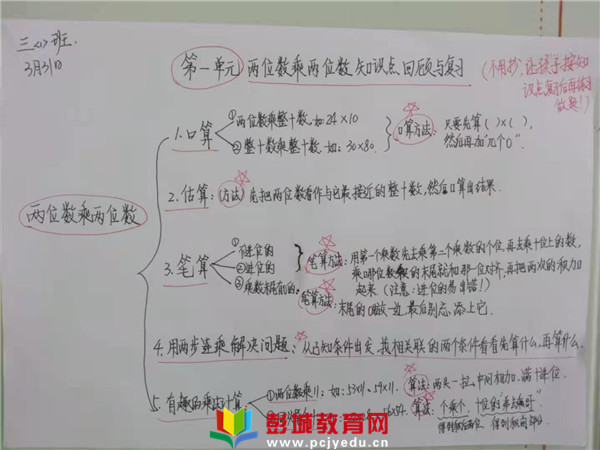 三<1>班
3月31日
第一单元 两位数乘两位数知识点回顾与复习
(不用抄,让孩子按知
识点复习后再练习
做题!)
两位数乘两位数
1.口算
①两位数乘整十数.如:24×10
②整十数乘整十数.如:30×80.
口算方法:只要先算( )×( ),
然后再加"几个0".
2.估算:(方法)先把两位数看作与它最接近的整十数,然后口算出结果.
3.笔算
①不进位的
②进位的
③乘数末尾有0的:
笔算方法:用第一个乘数先去乘第二个乘数的个位,再去乘十位上的数,
乘哪位数乘的末尾就和那位对齐,再把两次的积加
起来(注意:进位的易串错!)
笔算方法:末尾的0放一边,最后别忘添上它.
4.用两步连乘解决问题:从已知条件出发,找相关联的两个条件看看先算什么,再算什么.
5.有趣的乘法计算
①两位数乘11:如:53×11、59×11.
算法:两头一拉,中间相加,满十进位.
56×54.
算法:个乘个,
得到积后两位,得到积前部分
彭城教育网
www.pcjyedu.cn